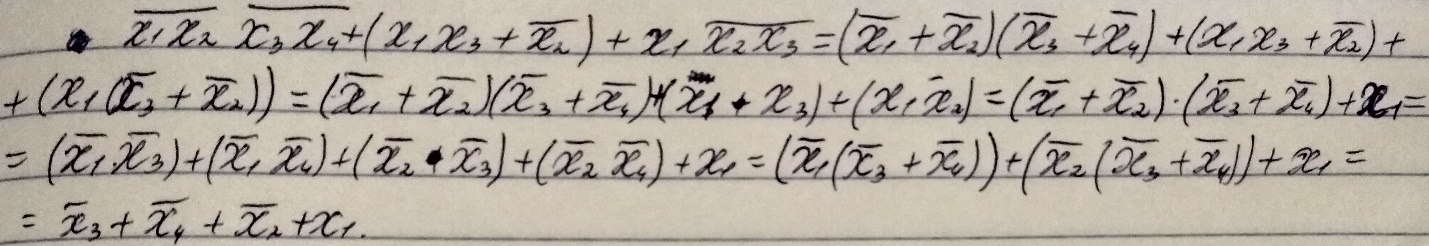 $\overline{x_1 x_2}\ \overline{x_3 x_4} + (x_1 x_3 + \overline{x}_2) + x_1\ \overline{x_2 x_3} = (\overline{x}_1 + \overline{x}_2)(\overline{x}_3 + \overline{x}_4) + (x_1 x_3 + \overline{x}_2) +$
$+ (x_1 (\overline{x}_3 + \overline{x}_2)) = (\overline{x}_1 + \overline{x}_2)(\overline{x}_3 + \overline{x}_4) + (x_1 \cdot x_3) + (x_1 \overline{x}_2) = (\overline{x}_1 + \overline{x}_2) \cdot (\overline{x}_3 + \overline{x}_4) + x_1 =$
$= (\overline{x}_1 \overline{x}_3) + (\overline{x}_1 \overline{x}_4) + (\overline{x}_2 \cdot \overline{x}_3) + (\overline{x}_2 \overline{x}_4) + x_1 = (\overline{x}_1 (\overline{x}_3 + \overline{x}_4)) + (\overline{x}_2 (\overline{x}_3 + \overline{x}_4)) + x_1 =$
$= \overline{x}_3 + \overline{x}_4 + \overline{x}_2 + x_1.$